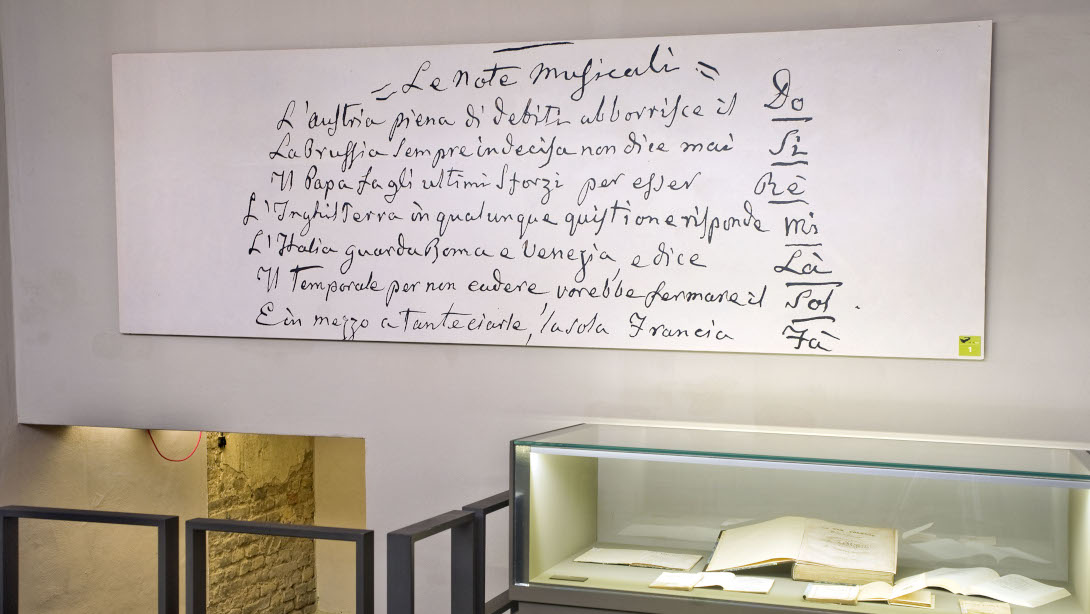 = Le Note Musicali =
L'austria piena di debiti abborrisce il Do
La Brussia sempre indecisa non dice mai Si
Il Papa fa gli ultimi sforzi per esser Rè
L'Inghisterra in qualunque quistione risponde Mi
L'Italia guarda Roma e Venezia, e dice Là
Il Temporale per non cadere, vorebbe fermare il Sol.
E in mezzo a tante ciarle, la sola Francia Fà
1